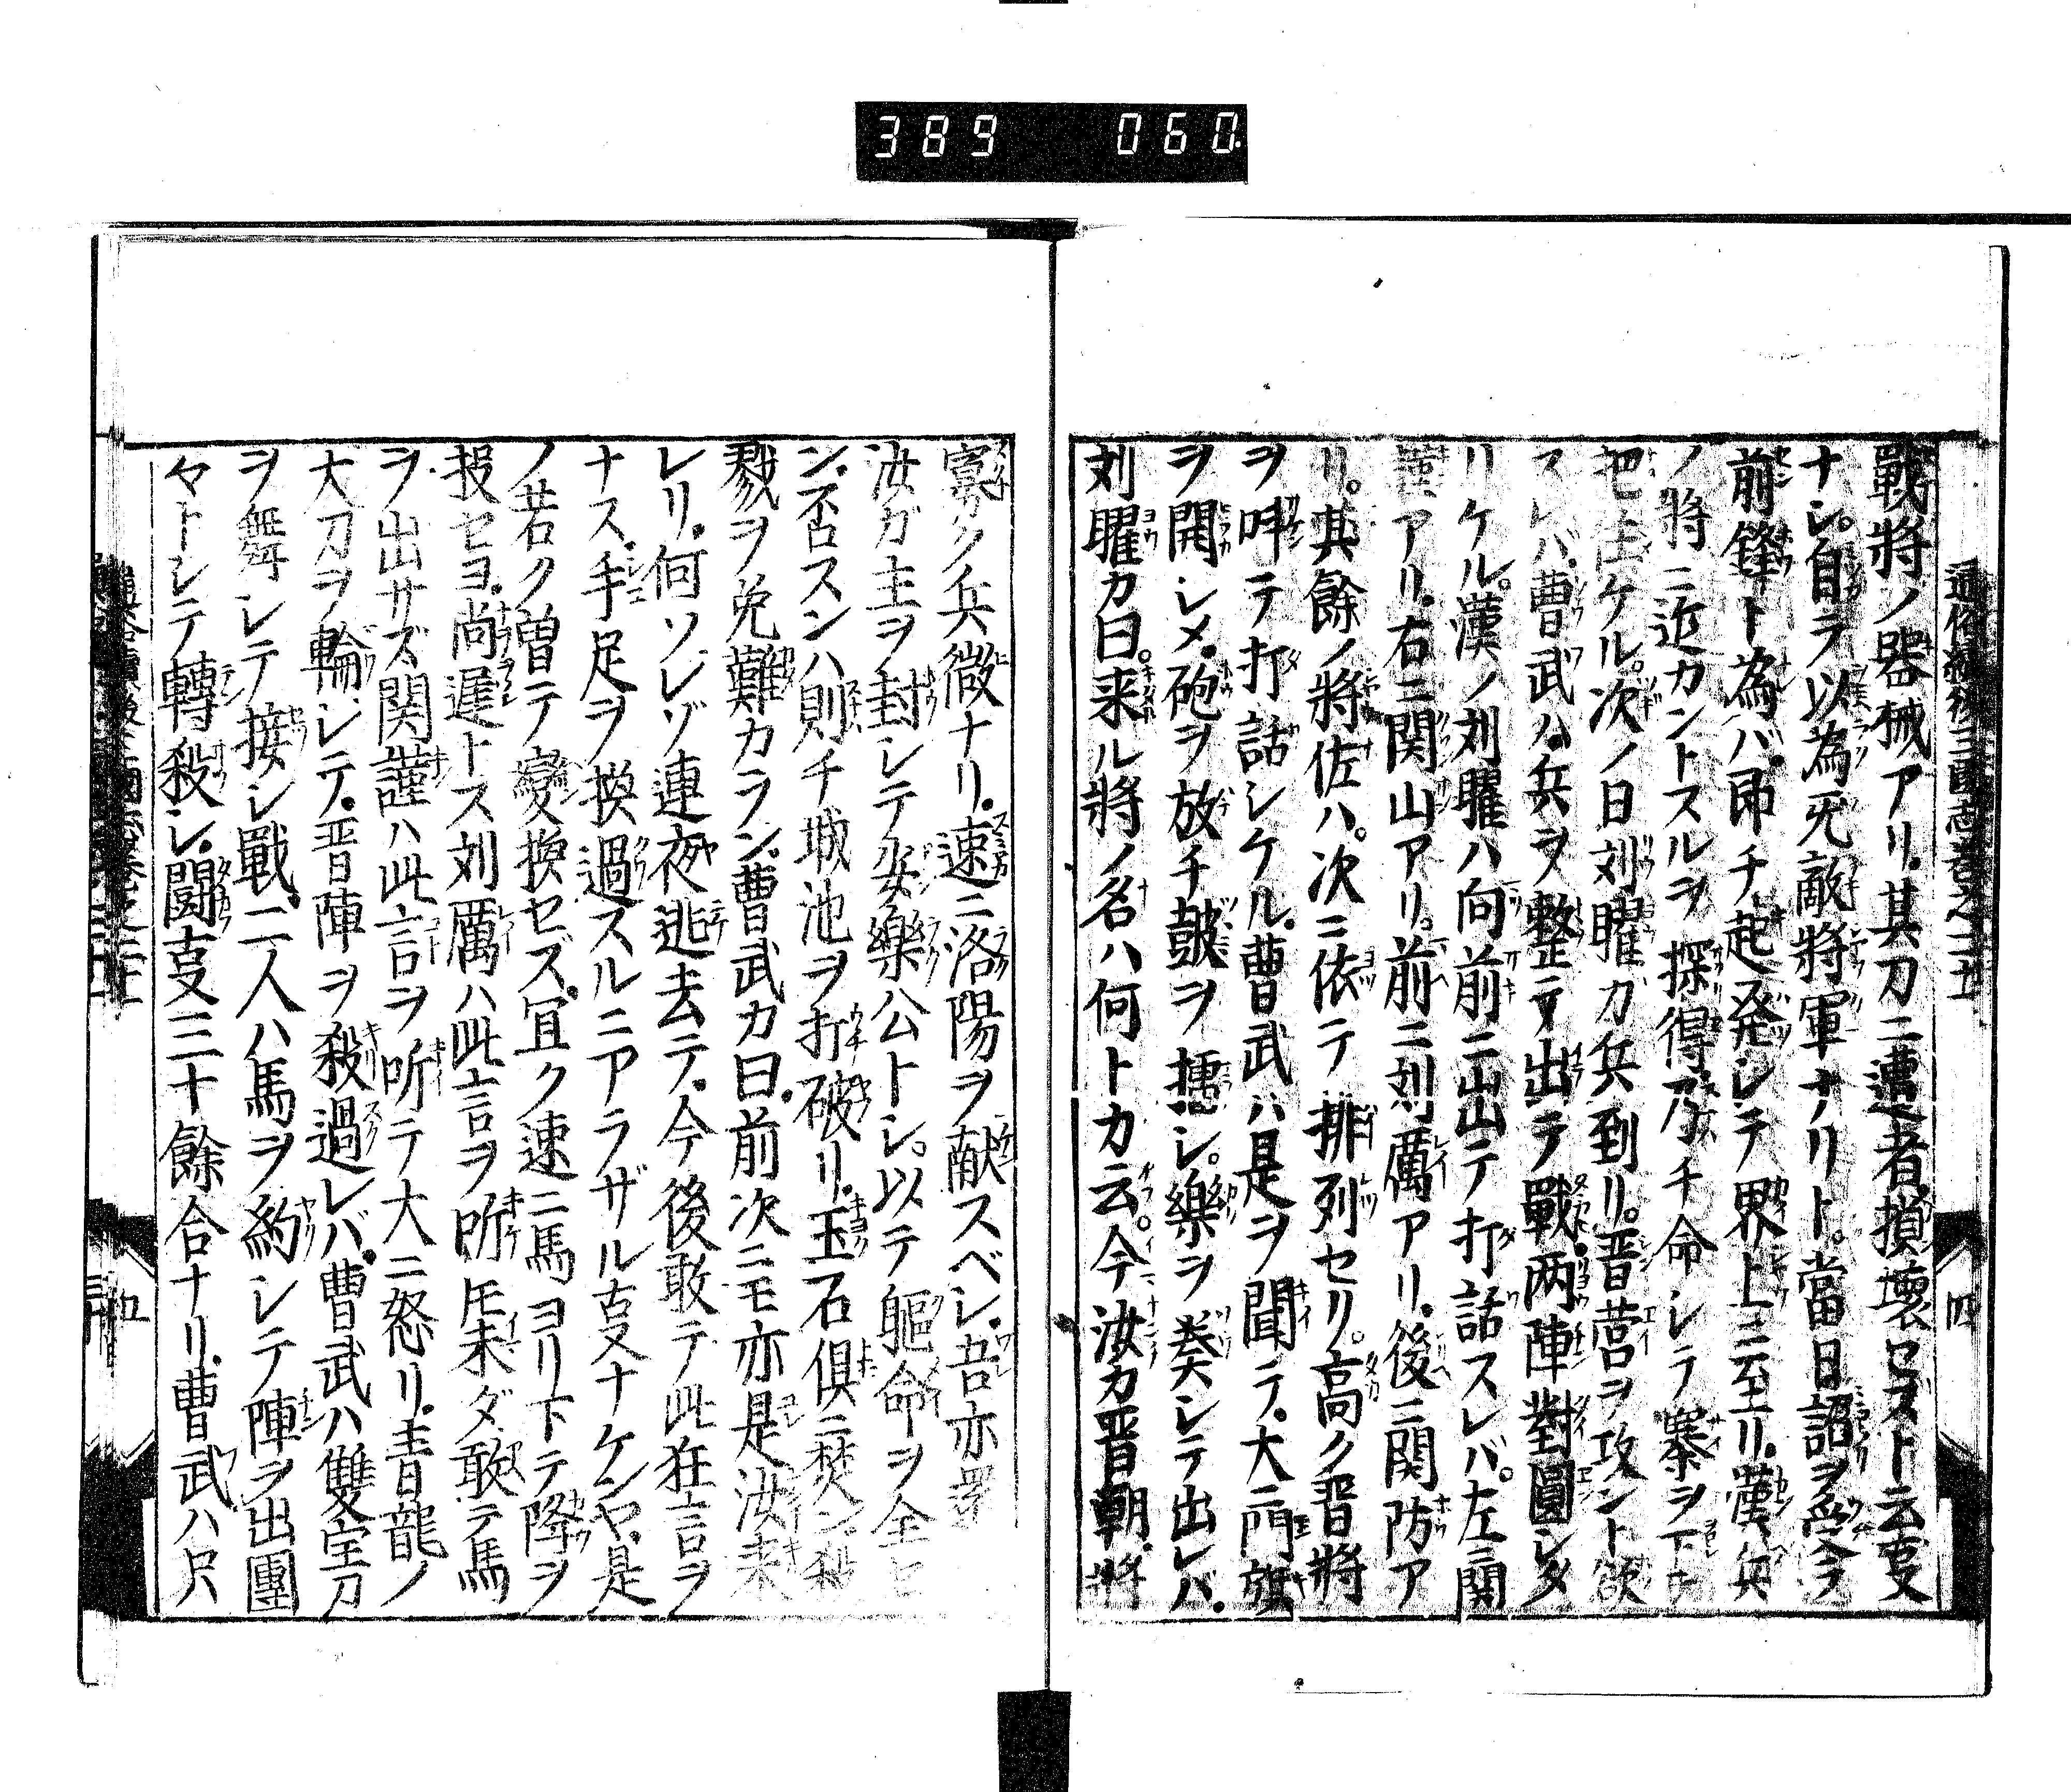 389 060
通俗續後三國志卷之二十 四
戰將ノ器械アリ其刀ニ遭者損壞セズト云フ
ナシ自ラ以為无敵將軍ナリト當日詔ヲ受今
前鋒ト為バ即チ起發シテ界上ニ至リ漢ノ兵
ノ將ニ近カントスルヲ探得乃チ命シテ寨ヲ下シ
把ケル次ノ日刘曜カ兵到リ晋營ヲ攻ント欲
スレバ曹武ハ兵ヲ整テ出テ戰両陣對圓シタ
リケル漢ノ刘曜ハ向前ニ出テ打話スレバ左ニ関
アリ右ニ関山アリ前ニ刘厲アリ後ニ関防ア
リ其餘ノ將佐ハ次ニ依テ排列セリ高ク晋將
ヲ呼テ打話シケル曹武ハ是ヲ聞テ大ニ門旗
ヲ開シメ砲ヲ放チ鼓ヲ擂シ樂ヲ奏シテ出レバ
刘曜カ曰来ル將ノ名ハ何トカ云今汝カ晋朝將
寡ク兵微ナリ速ニ洛陽ヲ献スベシ吾亦
汝ガ主ヲ封シテ安樂公トシ以テ軀命ヲ全セ
ン否スンハ則チ城池ヲ打破リ玉石倶ニ焚ン
戮ヲ免難カラン曹武カ曰前次ニモ亦是汝来
レリ何ソレゾ連夜逃去テ今後敢テ此狂言ヲ
ナス手足ヲ換過スルニアラザル叓ナケンヤ是
ノ若ク曽テ變換セズ冝ク速ニ馬ヨリ下テ降ヲ
投セヨ尚遅トス刘厲ハ此言ヲ所モ未ダ敢テ馬
ヲ出サズ関謹ハ此言ヲ听テ大ニ怒リ青龍ノ
大刀ヲ輪シテ晋陣ヲ殺過レバ曹武ハ雙宝刀
ヲ舞シテ接シ戰二人ハ馬ヲ約シテ陣ヲ出團
々トシテ轉殺シ闘叓三十餘合ナリ曹武ハ只
五